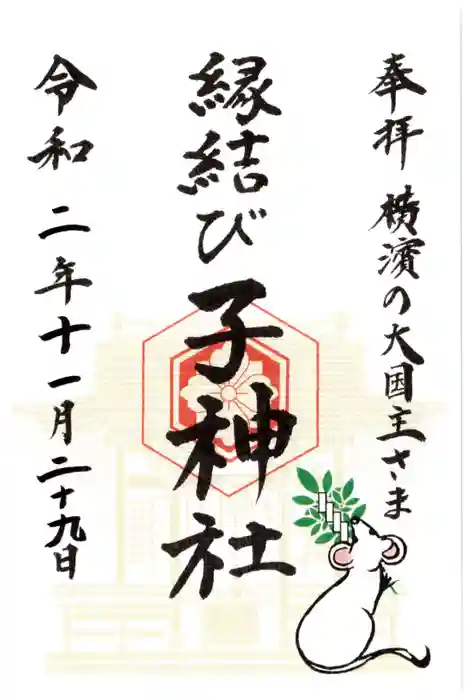 奉拝 横濱の大国主さま
縁結び子神社
令和二年十一月二十九日